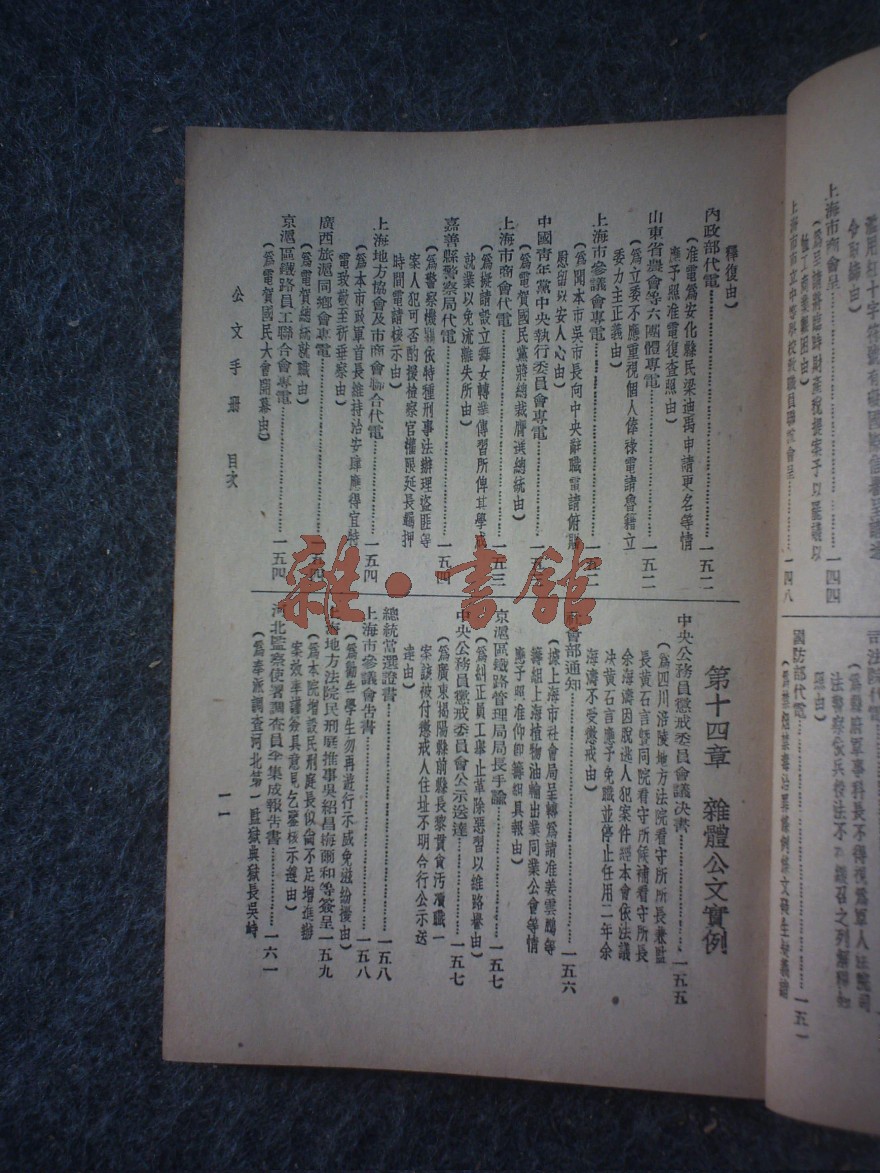 釋復由)
內政部代電……一五二
(准電爲安化縣民梁迪禹申請更名等情
應予照准電復查照由)
山東省農會等六團體專電……一五二
(爲立委不應重視個人俸祿電請魯籍立
委力主正義由)
上海市參議會專電……一五二
(爲聞本市吳市長向中央辭職電請俯賜
慰留以安人心由)
中國青年黨中央執行委員會專電
(爲電賀國民黨蔣總裁膺選總統由)
上海市商會代電……一五三
(爲擬請設立舞女轉業傳習所俾其學成
就業以免流離失所由)
嘉善縣警察局代電……一五四
(爲警察機關依特種刑事法辦理盜匪等
案人犯可否酌援檢察官權限延長羈押
時間電請核示由)
上海地方協會及市商會聯合代電……一五四
(爲本市政軍首長維持治安肆應得宜特
電致敬至祈垂察由)
廣西旅滬同鄉會專電……一五四
(爲電賀總統就職由)
京滬區鐵路員工聯合會專電……一五四
(爲電賀國民大會開幕由)
第十四章 雜體公文實例
中央公務員懲戒委員會議決書……一五五
(爲四川涪陵地方法院看守所所長兼監
長黃石言暨同院看守所候補看守所長
余海濤因脫逃人犯案件經本會依法議
決黃石言應予免職並停止任用二年余
海濤不受懲戒由)
社會部通知……一五六
(據上海市社會局呈轉爲請准姜雲鵬等
籌組上海植物油輸出業同業公會等情
應予照准仰卽籌組具報由)
京滬區鐵路管理局局長手諭……一五七
(爲糾正員工舉止革除惡習以維路譽由)
中央公務員懲戒委員會公示送達……一五七
(爲廣東揭陽縣前縣長蔡貫貪污瀆職一
案該被付懲戒人住址不明合行公示送
達由)
總統當選證書……一五八
上海市參議會告書……一五八
(爲勸告學生勿再遊行示威免滋紛擾由)
上海地方法院民刑庭推事吳紹昌梅爾和等簽呈一五九
(爲本院增設民刑庭長似倫不足增進辦
案效率謹簽具意見乞鑒核示遵由)
河北監察使署調查員李集成報告書……一六一
(爲奉派調查河北第一監獄典獄長吳峙
公文手冊 目次
一一
雜·書館
上海市商會呈……一四四
一四八
司法院代電
國防部代電……一五一